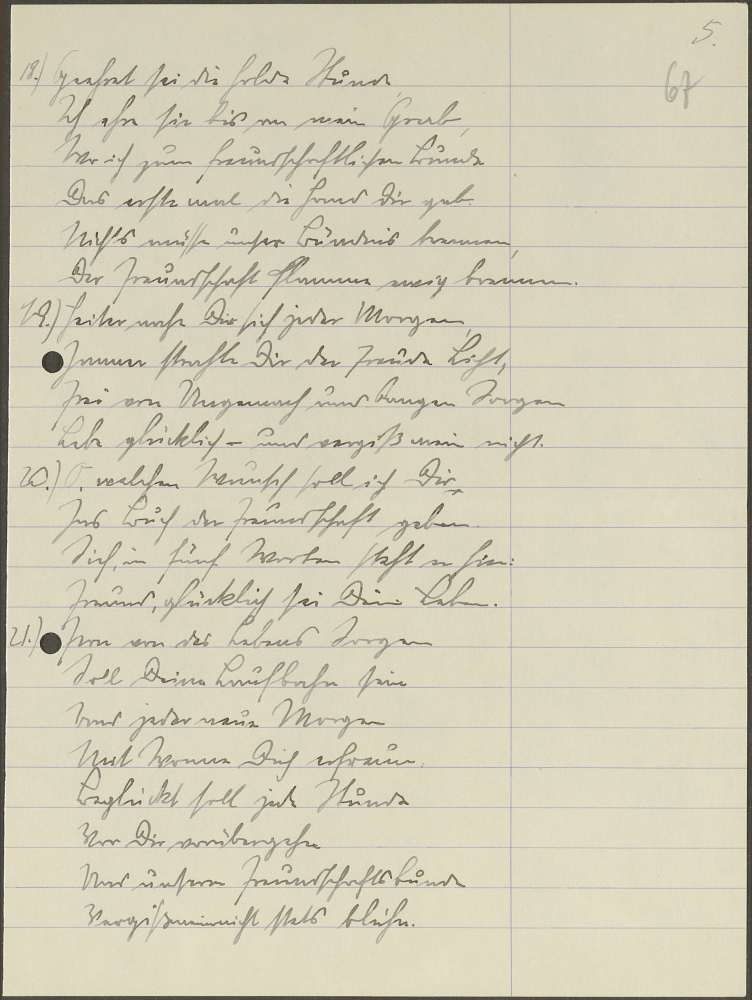 5.
67
18.) Geehret sei die holde Stunde,
Ich ehre sie bis an mein Grab,
Wo ich zum freundschaftlichen Bunde
Das erste mal die Hand Dir gab.
Nichts müsse unser Bündnis trennen,
Der Freundschaft Flamme ewig brennen.
19.) Heiter nahe Dir sich jeder Morgen,
Immer strahle Dir der Freude Licht,
Frei von Ungemach und bangen Sorgen
Lebe glücklich – und vergiß mein nicht.
20.) O, welchen Wunsch soll ich Dir
Ins Buch der Freundschaft geben.
Sieh, in fünf Worten steht er hier:
Freund, glücklich sei Dein Leben.
21.) Fern von des Lebens Sorgen
Soll Deine Laufbahn sein
Und jeder neue Morgen
Mit Wonne Dich erfreun.
Beglückt soll jede Stunde
Vor Dir vorübergehn
Und unserm Freundschaftsbunde
Vergißmeinnicht stets blühn.